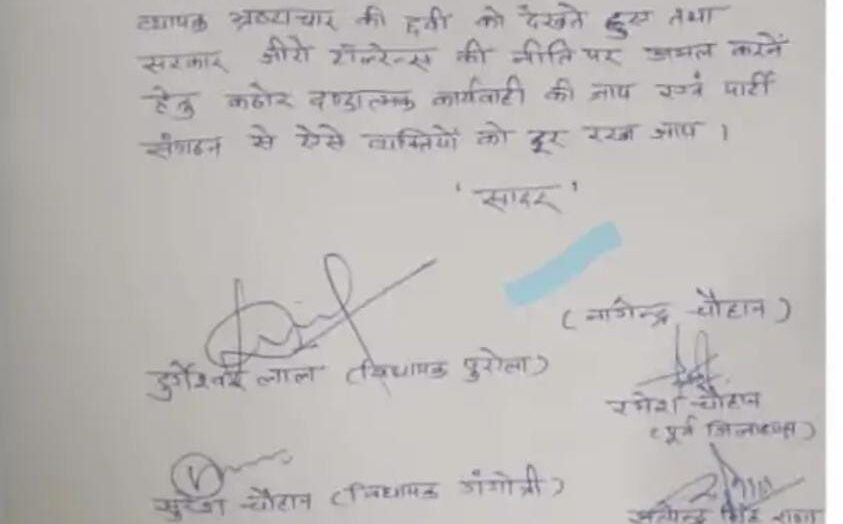 व्यापक भ्रष्टाचार की दर्वी को देखते हुए तथा
सरकार जीरो टॉलरेन्स की नीति पर अमल करने
हेतु कठोर दण्डात्मक कार्यवाही की जाय एवं पार्टी
संगठन से ऐसे व्यक्तियों को दूर रखा जाय ।
' सादर '
( नागेन्द्र चौहान )
दुर्गेश्वर लाल (विधायक पुरोला)
रमेश चौहान
(पूर्व जिलाध्यक्ष)
सुरेश चौहान (विधायक गंगोत्री)
सत्येन्द्र सिंह राणा